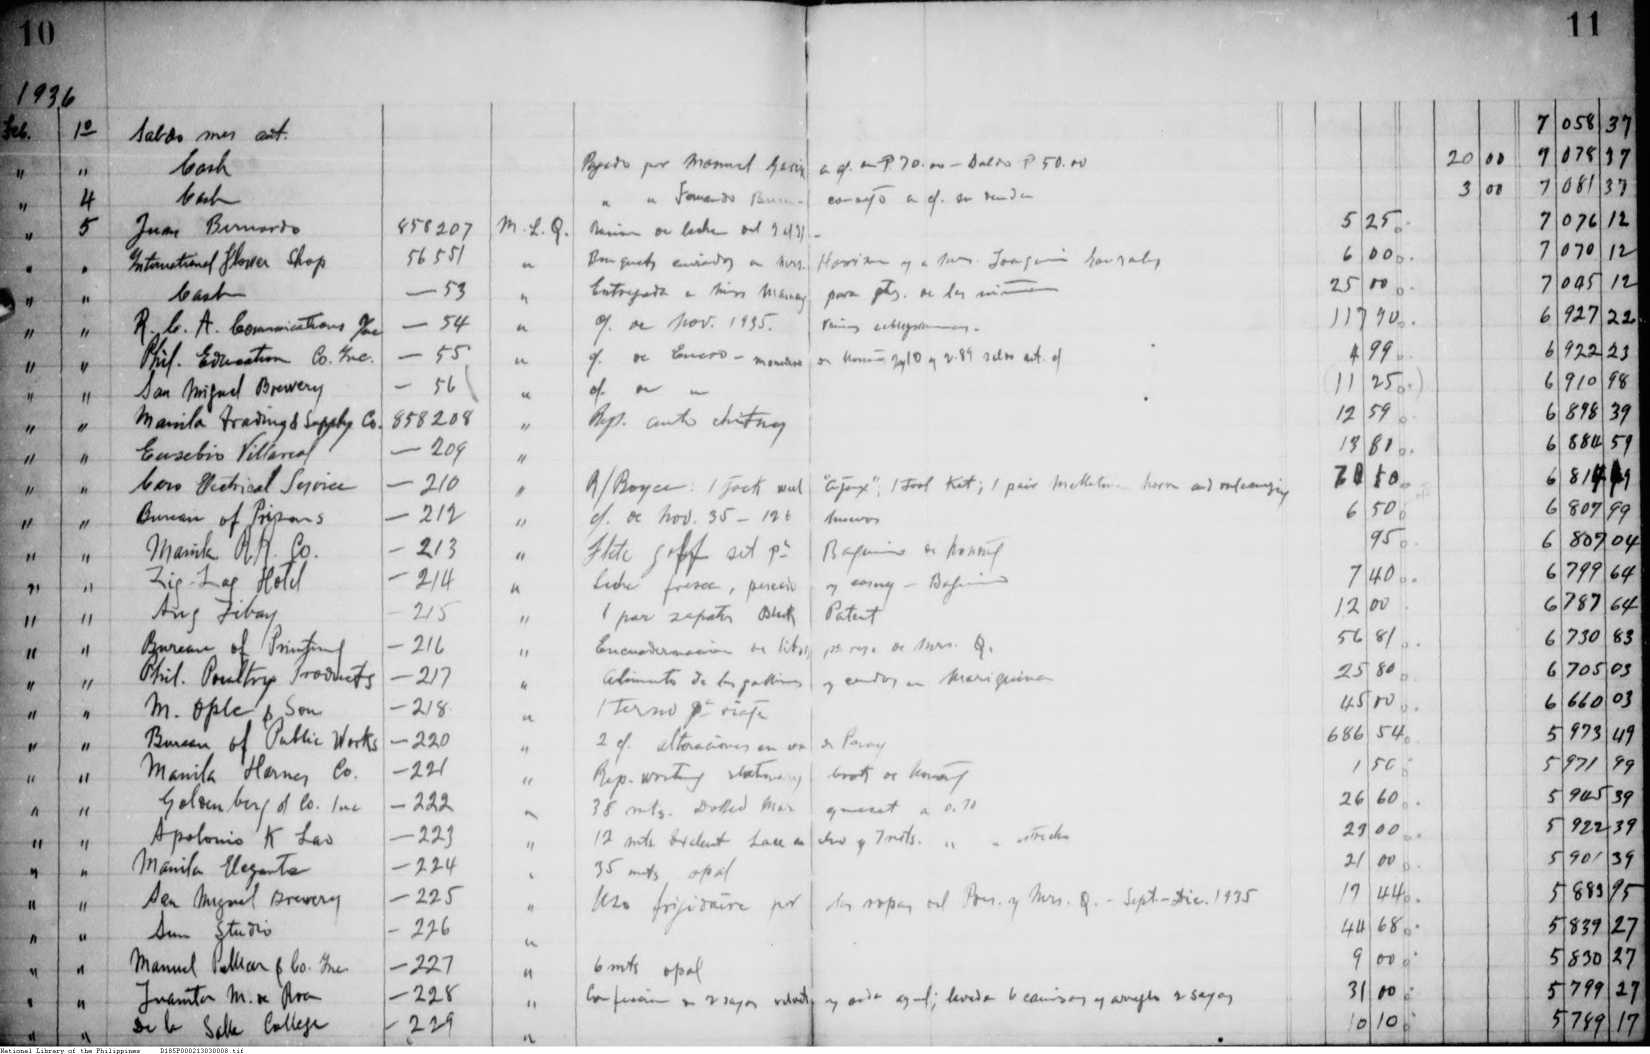 10 11
1936
Feb. 1º Saldo mes ant. 7 058 37
" " Cash Pagado por Manuel a cf. an ₱70.00 – Saldo ₱50.00 20 00 7 078 37
" 4 Cash " " Fernando a cf. su 3 00 7 081 37
" 5 Juan Bernardo 858207 M.L.Q. de leche del 5 25 7 076 12
" " International Flower Shop 56551 " Bouquets enviados a Mrs. Harrison y a Mrs. Joaquin Gonzalez 6 00 7 070 12
" " Cash — 53 " Entregada a Miss para gts. de las niñas 25 00 7 045 12
" " R. C. A. Communications Inc — 54 " cf. de Nov. 1935. varios cablegramas. 117 90 6 927 22
" " Phil. Education Co. Inc. — 55 " cf. de Enero – 2.89 saldo ant. cf 4 99 6 922 23
" " San Miguel Brewery — 56 " cf. de " (11 25) 6 910 98
" " Manila Trading & Supply Co. 858208 " Rep. auto 12 59 6 898 39
" " Eusebio Villareal — 209 " 13 80 6 884 59
" " Caro Electrical Service — 210 " R/Royce: 1 Jack "Ajax"; 1 Tool Kit; 1 pair horn and 6 81
" " Bureau of Prisons — 212 " cf. de Nov. 35 – huevos 6 50 6 807 99
" " Manila R.R. Co. — 213 " Flete golf set pª Baguio de 95 6 807 04
" " Zig-Zag Hotel — 214 " Leche fresca, pescado y – Baguio 7 40 6 799 64
" " Ang Tibay — 215 " 1 par zapatos Black Patent 12 00 6 787 64
" " Bureau of Printing — 216 " Encuadernacion de libros de Mrs. Q. 56 81 6 730 83
" " Phil. Poultry Products — 217 " Alimentos de las gallinas y cerdos en Mariquina 25 80 6 705 03
" " M. Ople & Son — 218 " 1 terno pª viaje 45 00 6 660 03
" " Bureau of Public Works — 220 " 2 cf. alteraciones en de Pasay 686 54 5 973 49
" " Manila Harness Co. — 221 " Rep. de 1 50 5 971 99
" " Goldenberg & Co. Inc — 222 " 38 mts. Dotted a 0.70 26 60 5 945 39
" " Apolonio K Lao — 223 " 12 mts Lace y 7 mts. " " 23 00 5 922 39
" " Manila Elegante — 224 " 35 mts opal 21 00 5 901 39
" " San Miguel Brewery — 225 " Uso frigidaire por las ropas del Pres. y Mrs. Q. – Sept.–Dic. 1935 17 44 5 883 95
" " Sun Studio — 226 " 44 68 5 839 27
" " Manuel Pellicer & Co. Inc — 227 " 6 mts opal 9 00 5 830 27
" " Juanita M. de Roa — 228 " Confeccion de 2 sayas y seda azul; 6 camisas y arreglo 2 sayas 31 00 5 799 27
" " De la Salle College — 229 " 10 10 5 789 17
National Library of the Philippines D185P000213030008.tif